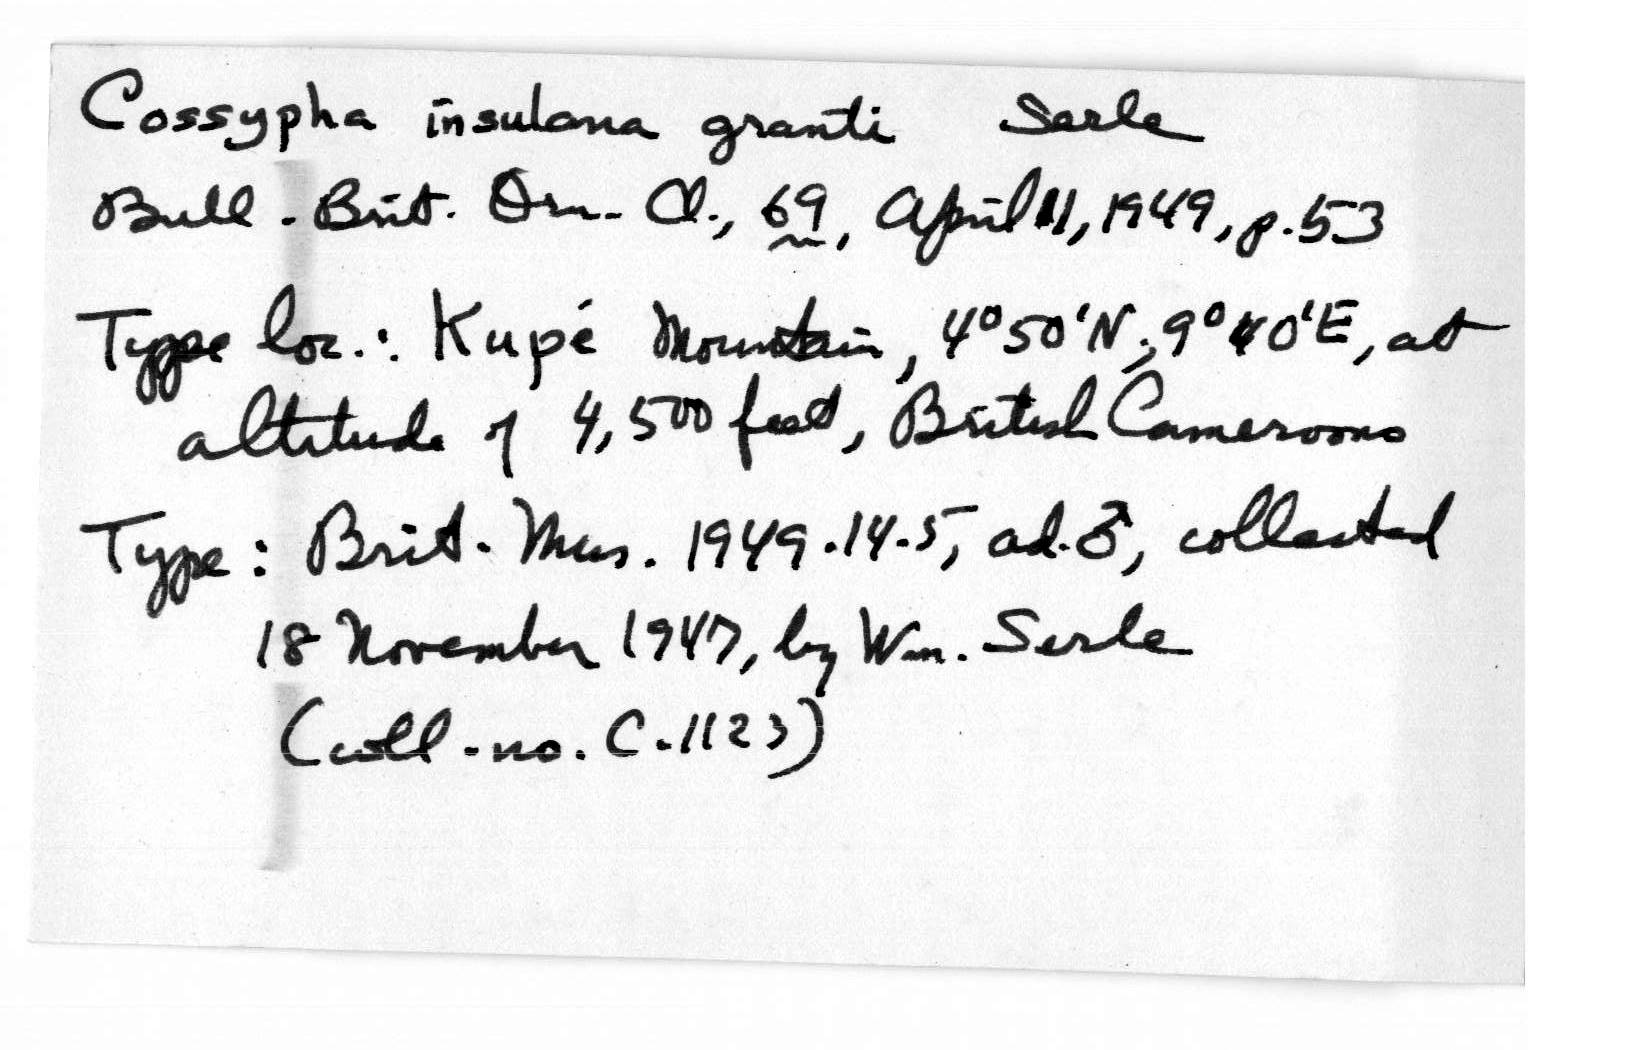 Cossypha insulana granti Serle
Bull. Brit. Orn. Cl., 69, April 11, 1949, p. 53
Type loc.: Kupé Mountain, 4°50'N; 9°40'E, at
altitude of 4,500 feet, British Cameroons
Type: Brit. Mus. 1949.14.5, ad. ♂, collected
18 November 1947, by Wm. Serle
(coll. no. C.1123)